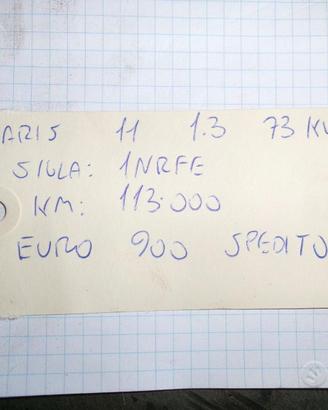 ARIS 11 1.3 73 KW
SIGLA: 1NRFE
KM: 113.000
EURO 900 SPEDITO